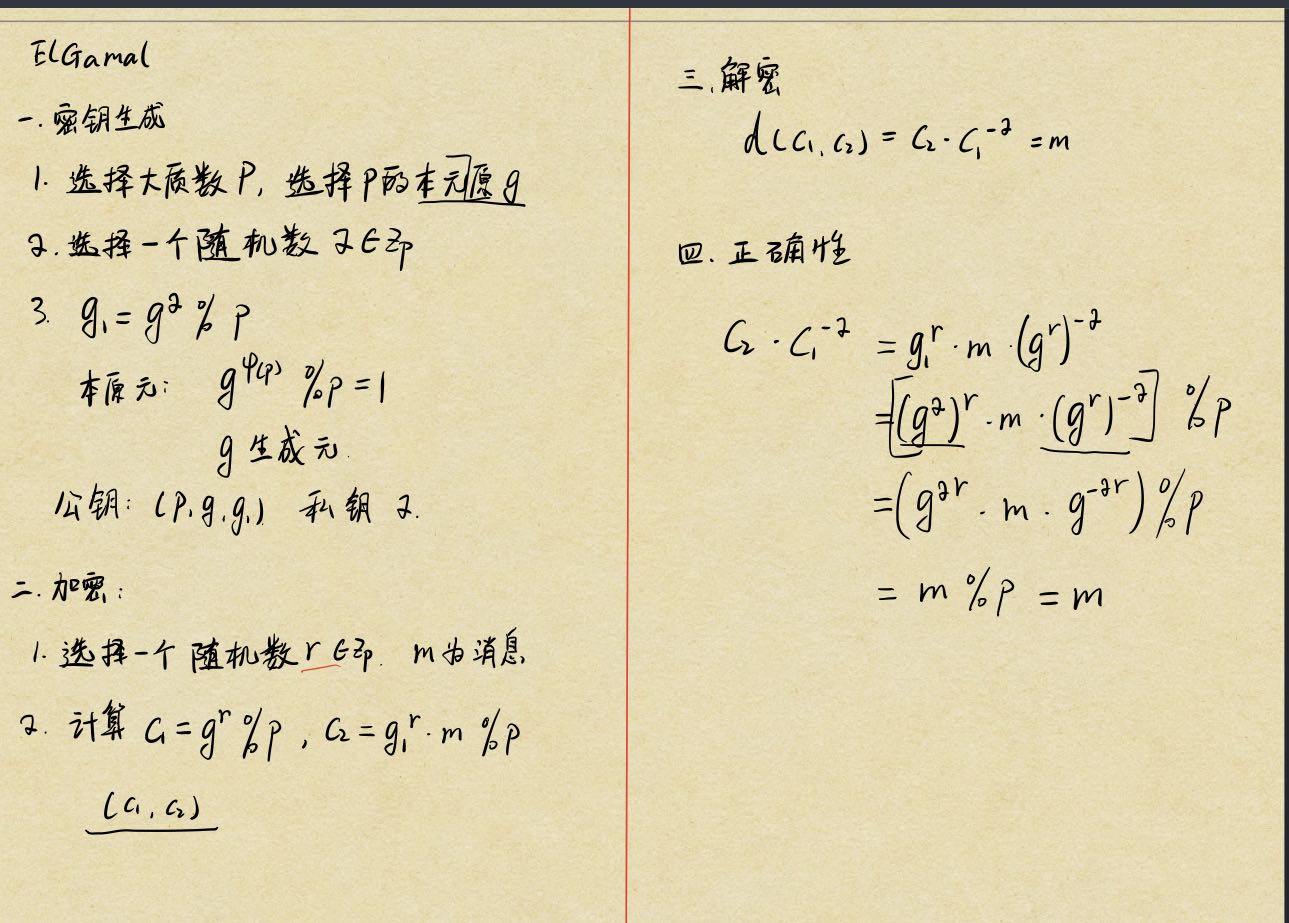 ELGamal
一.密钥生成
1. 选择大质数P, 选择P的本元原 g
2. 选择一个随机数 2∈Zp
3. g₁ = g² % p
本原元: g^φ(p) % p = 1
g 生成元.
公钥: (P, g, g₁) 私钥 2.
二.加密:
1. 选择一个随机数 r ∈Zp. m为消息
2. 计算 C₁ = g^r % p , C₂ = g₁^r · m % p
(C₁, C₂)
三.解密
d(C₁, C₂) = C₂ · C₁^-2 = m
四.正确性
C₂ · C₁^-2 = g₁^r · m · (g^r)^-2
= [(g²)^r · m · (g^r)^-2] % p
= (g^2r · m · g^-2r) % p
= m % p = m